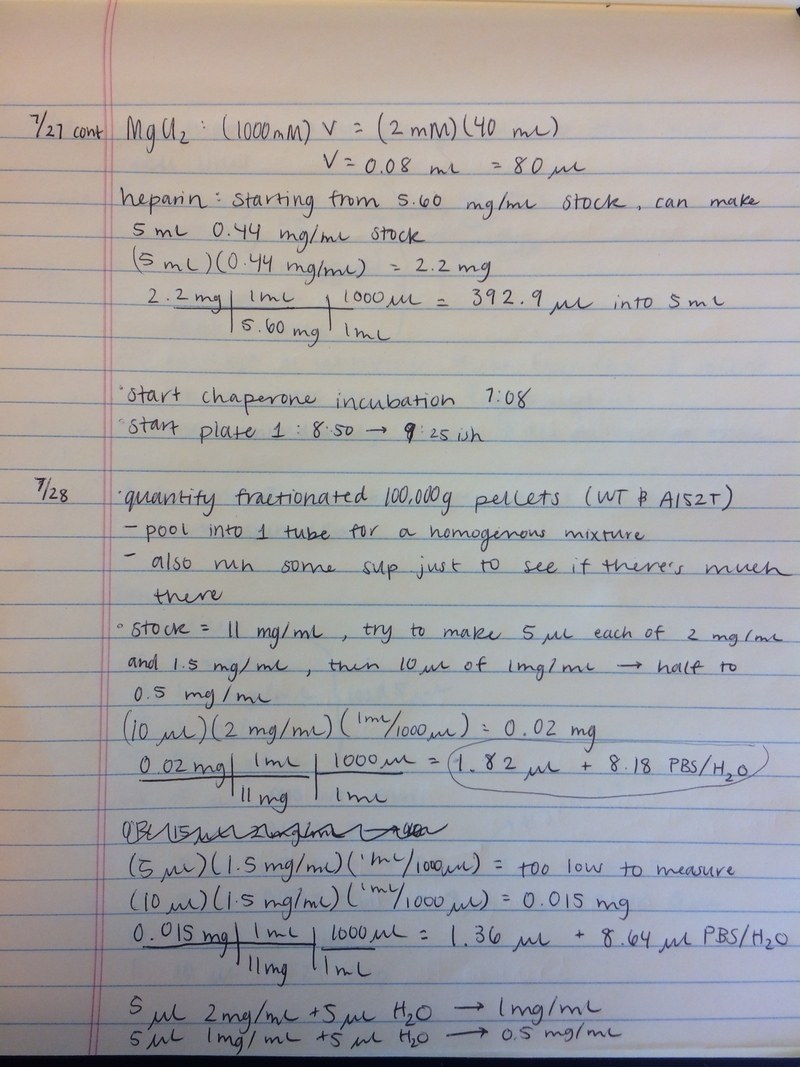 7/27 cont MgCl2 : (1000mM) V = (2 mM)(40 ml)
V = 0.08 ml = 80 μl
heparin : starting from 5.60 mg/ml stock, can make
5 mL 0.44 mg/ml stock
(5 mL)(0.44 mg/ml) = 2.2 mg
2.2 mg | 1mL | 1000 μl = 392.9 μl into 5 mL
5.60 mg | 1mL
· start chaperone incubation 7:08
· start plate 1 : 8:50 → 9:25 ish
7/28 · quantify fractionated 100,000g pellets (WT & A152T)
- pool into 1 tube for a homogenous mixture
- also run some sup just to see if there's much
there
· stock = 11 mg/mL, try to make 5 μl each of 2 mg/mL
and 1.5 mg/mL, then 10 μl of 1mg/mL → half to
0.5 mg/mL
(10 μl)(2 mg/mL)(1mL/1000 μl) = 0.02 mg
0.02 mg | 1mL | 1000 μl = 1.82 μl + 8.18 PBS/H2O
11 mg | 1mL
(5 μl)(1.5 mg/ml)(1mL/1000μl) = too low to measure
(10 μl)(1.5 mg/ml)(1mL/1000 μl) = 0.015 mg
0.015 mg | 1mL | 1000 μl = 1.36 μl + 8.64 μl PBS/H2O
11mg | 1mL
5 μl 2mg/mL + 5 μl H2O → 1mg/mL
5 μl 1mg/mL + 5 μl H2O → 0.5 mg/mL